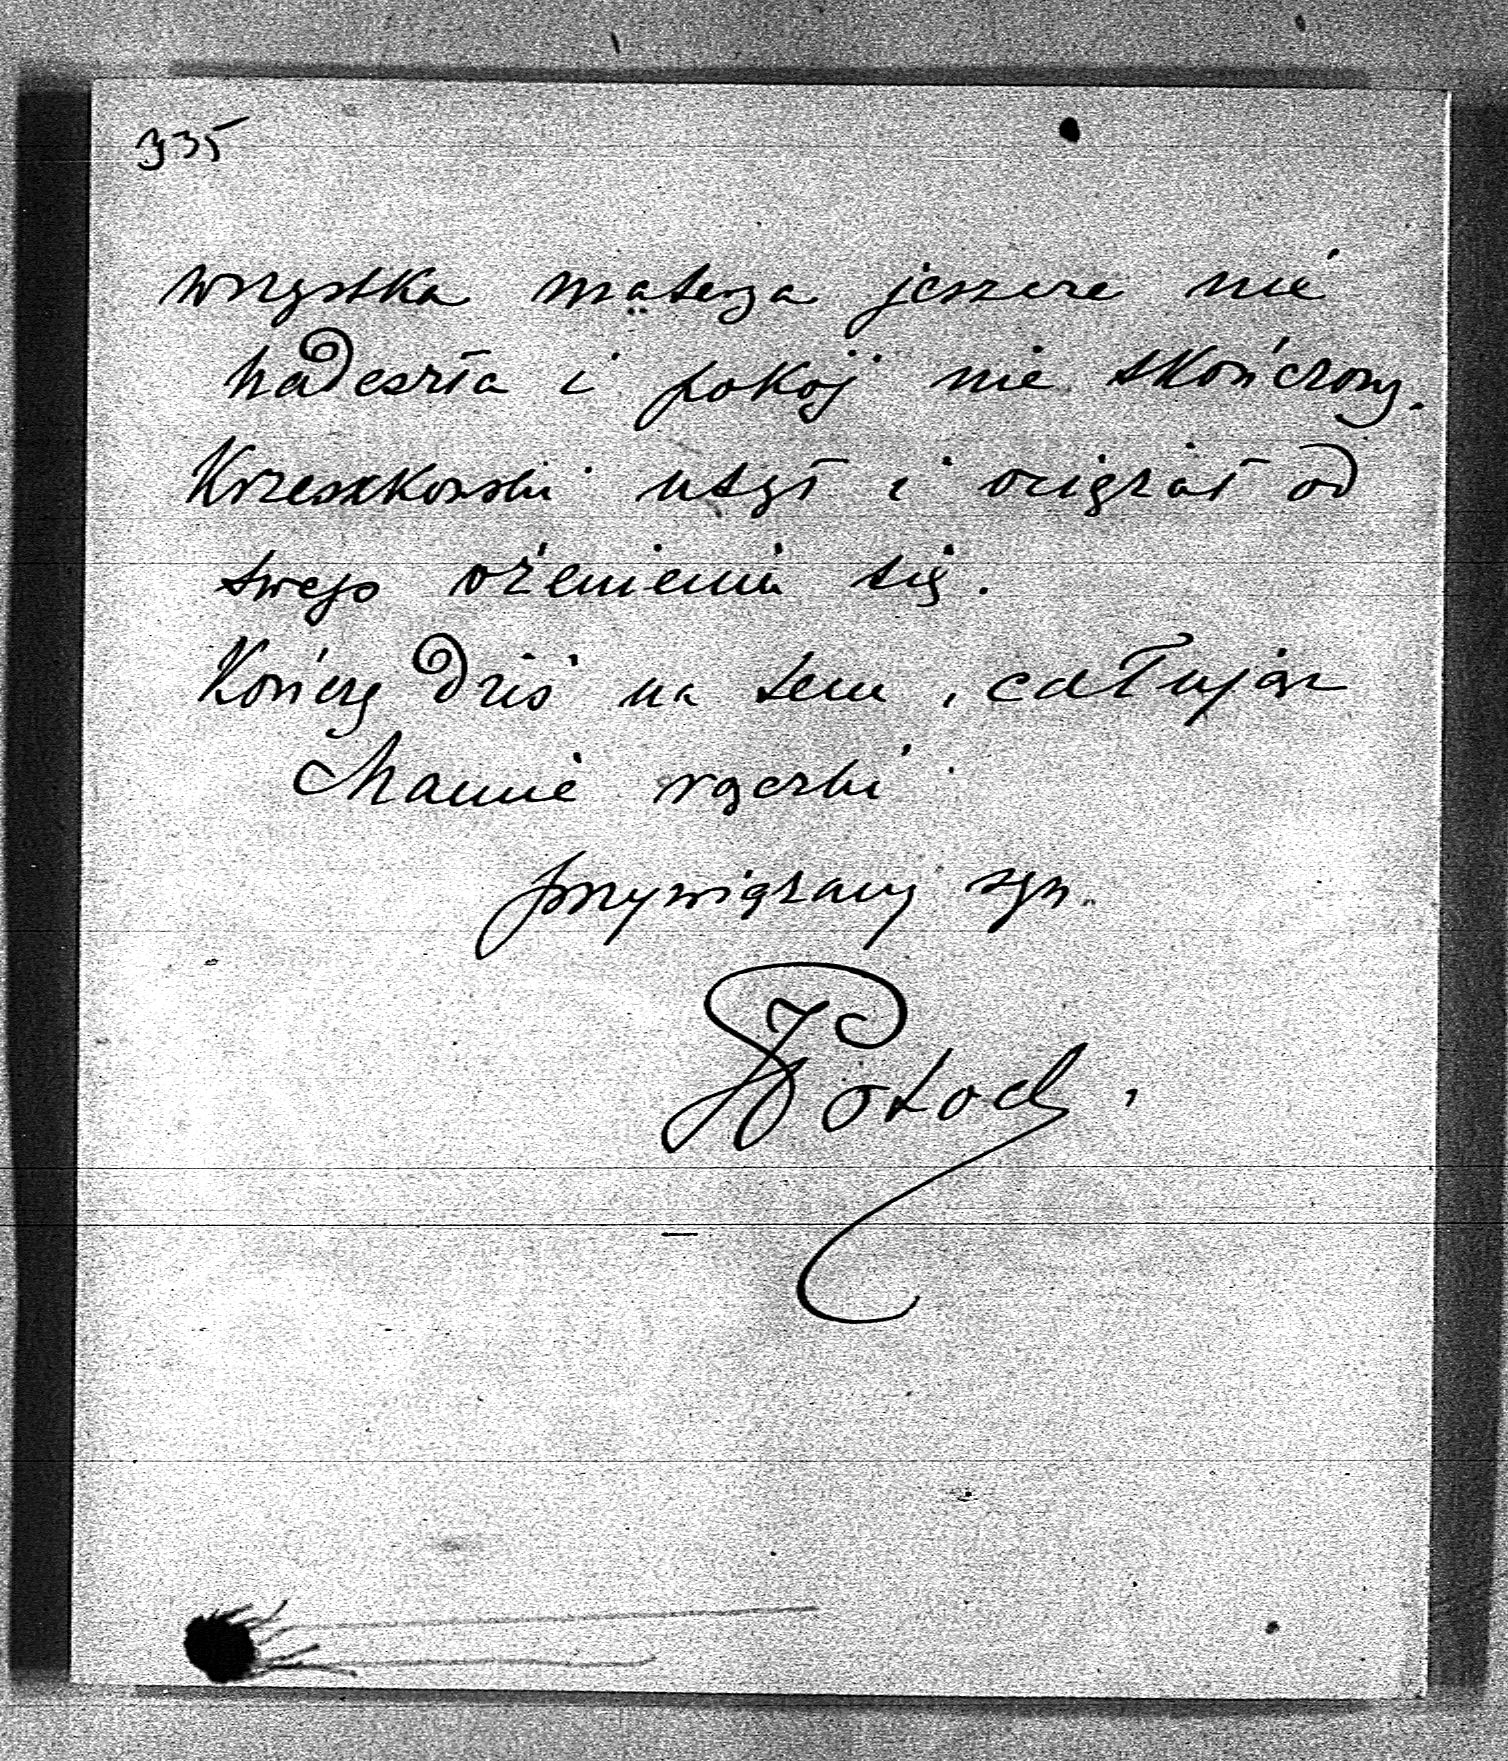 335
wszystka materya jeszcze nie
nadeszła i pokój nie skończony.
Krzeszkowski utył i ociężał od
swego ożenienia się.
Kończę dziś na tem, całując
Mamie rączki
przywiązany syn.
Potocki